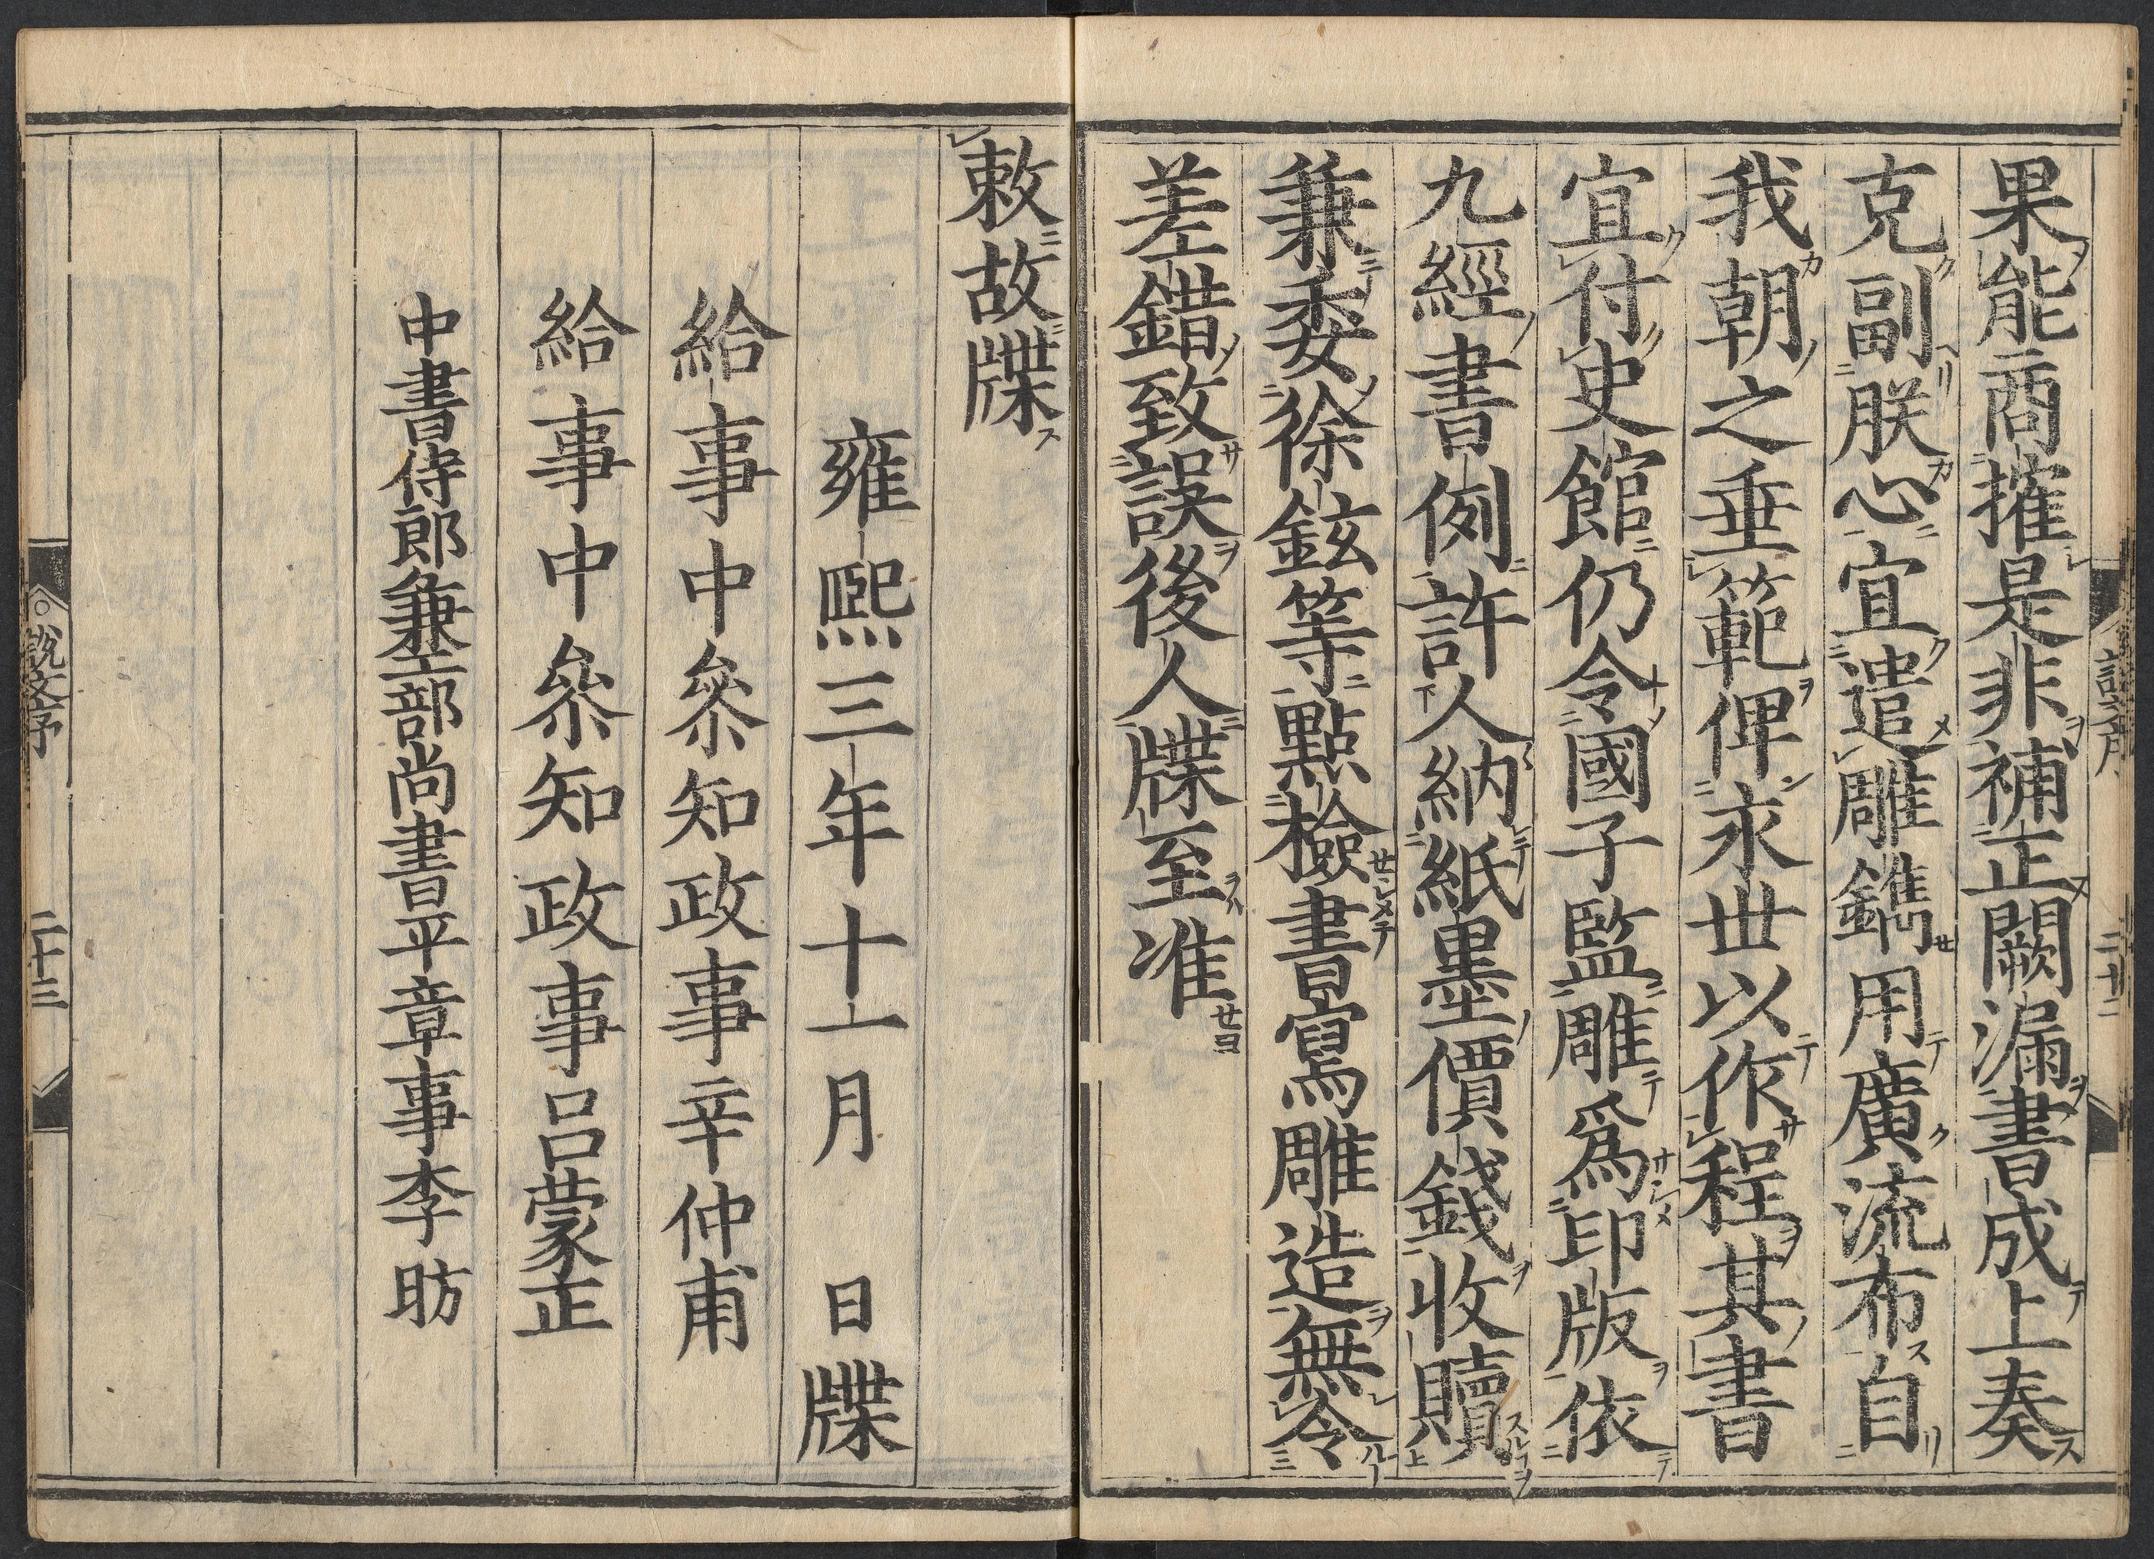 果能商搉是非補正闕漏書成上奏
克副朕心宜遣雕鐫用廣流布自
我朝之垂範俾永世以作程其書
宜付史館仍令國子監雕爲印版依
九經書例許人納紙墨價錢收贖
兼委徐鉉等點檢書寫雕造無令
差錯致誤後人牒至准
敕故牒
雍熙三年十一月　日牒
給事中參知政事辛仲甫
給事中參知政事呂蒙正
中書侍郎兼工部尚書平章事李昉
說文序　二十三